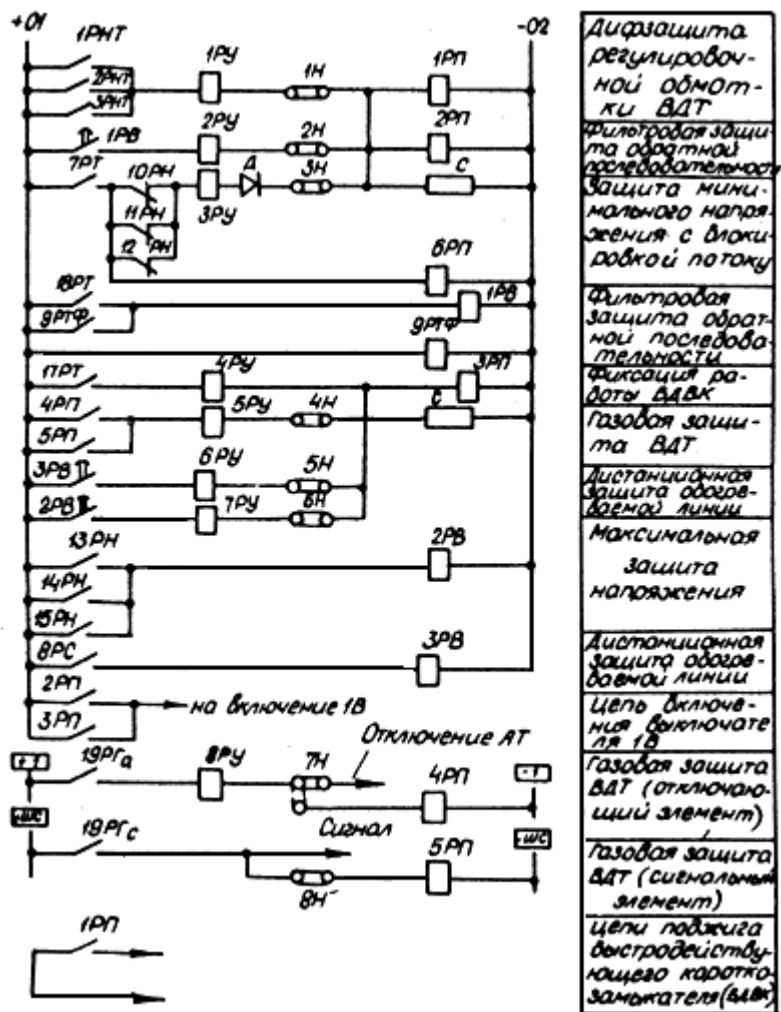 +01
-02
1РНТ
1РУ
1Н
1РП
2РНТ
3РНТ
1РВ
2РУ
2Н
2РП
7РТ
10РН
3РУ
Д
3Н
С
11РН
12 РН
6РП
18РТ
1РВ
9РТФ
9РТФ
17РТ
4РУ
3РП
4РП
5РУ
4Н
С
5РП
3РВ
6РУ
5Н
2РВ
7РУ
6Н
13РН
2РВ
14РН
15РН
8РС
3РВ
2РП
на включение 1В
3РП
Отключение АТ
+1
19РГа
8РУ
7Н
4РП
-1
+ШС
19РГс
Сигнал
5РП
-ШС
8Н
1РП
Дифзащита
регулировоч-
ной обмот-
ки ВДТ
Фильтровая защи-
та обратной
последовательности
Защита мини-
мального напря-
жения с блоки-
ровкой потоку
Фильтровая
защита обрат-
ной последова-
тельности
Фиксация ра-
боты БДВК
Газовая защи-
та ВДТ
Дистанционная
защита обогре-
ваемой линии
Максимальная
защита
напряжения
Дистанционная
защита обогре-
ваемой линии
Цепь включе-
ния выключате
ля 1В
Газовая защита
ВДТ (отключаю-
щий элемент)
Газовая защита
ВДТ (сигнальный
элемент)
Цепи поджига
быстродейству-
ющего коротко-
замыкателя (БДВК)